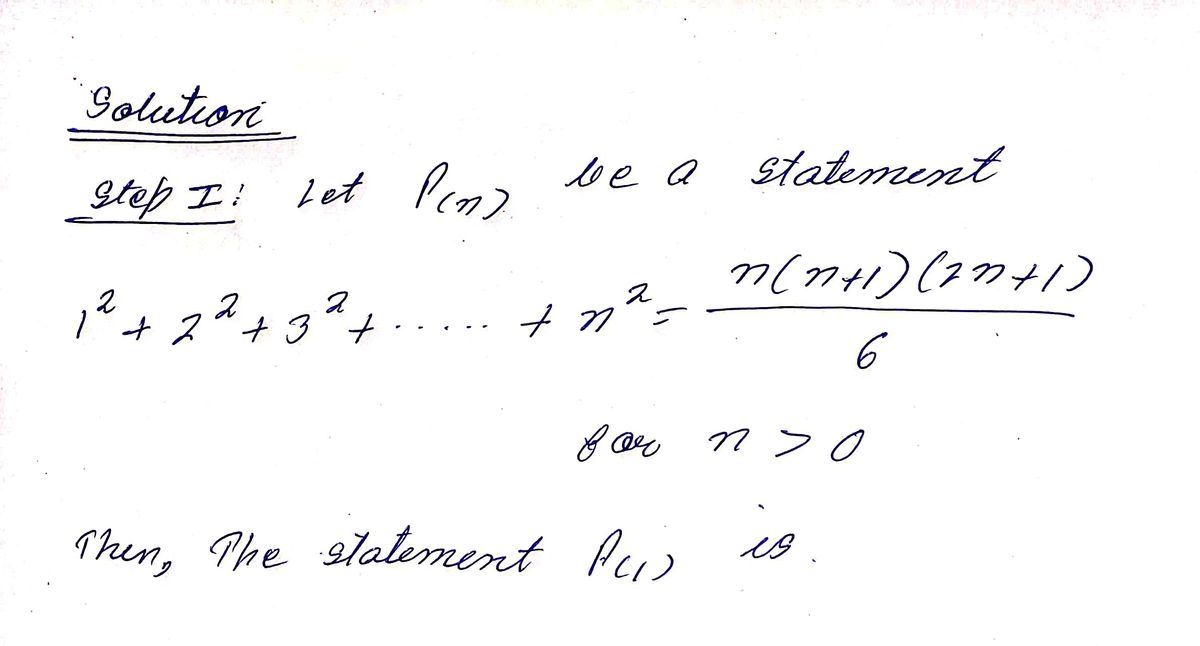 Solution
Step I: Let P(n) be a statement
1² + 2² + 3² + ...... + n² = n(n+1)(2n+1) / 6
for n > 0
Then, The statement P(1) is.